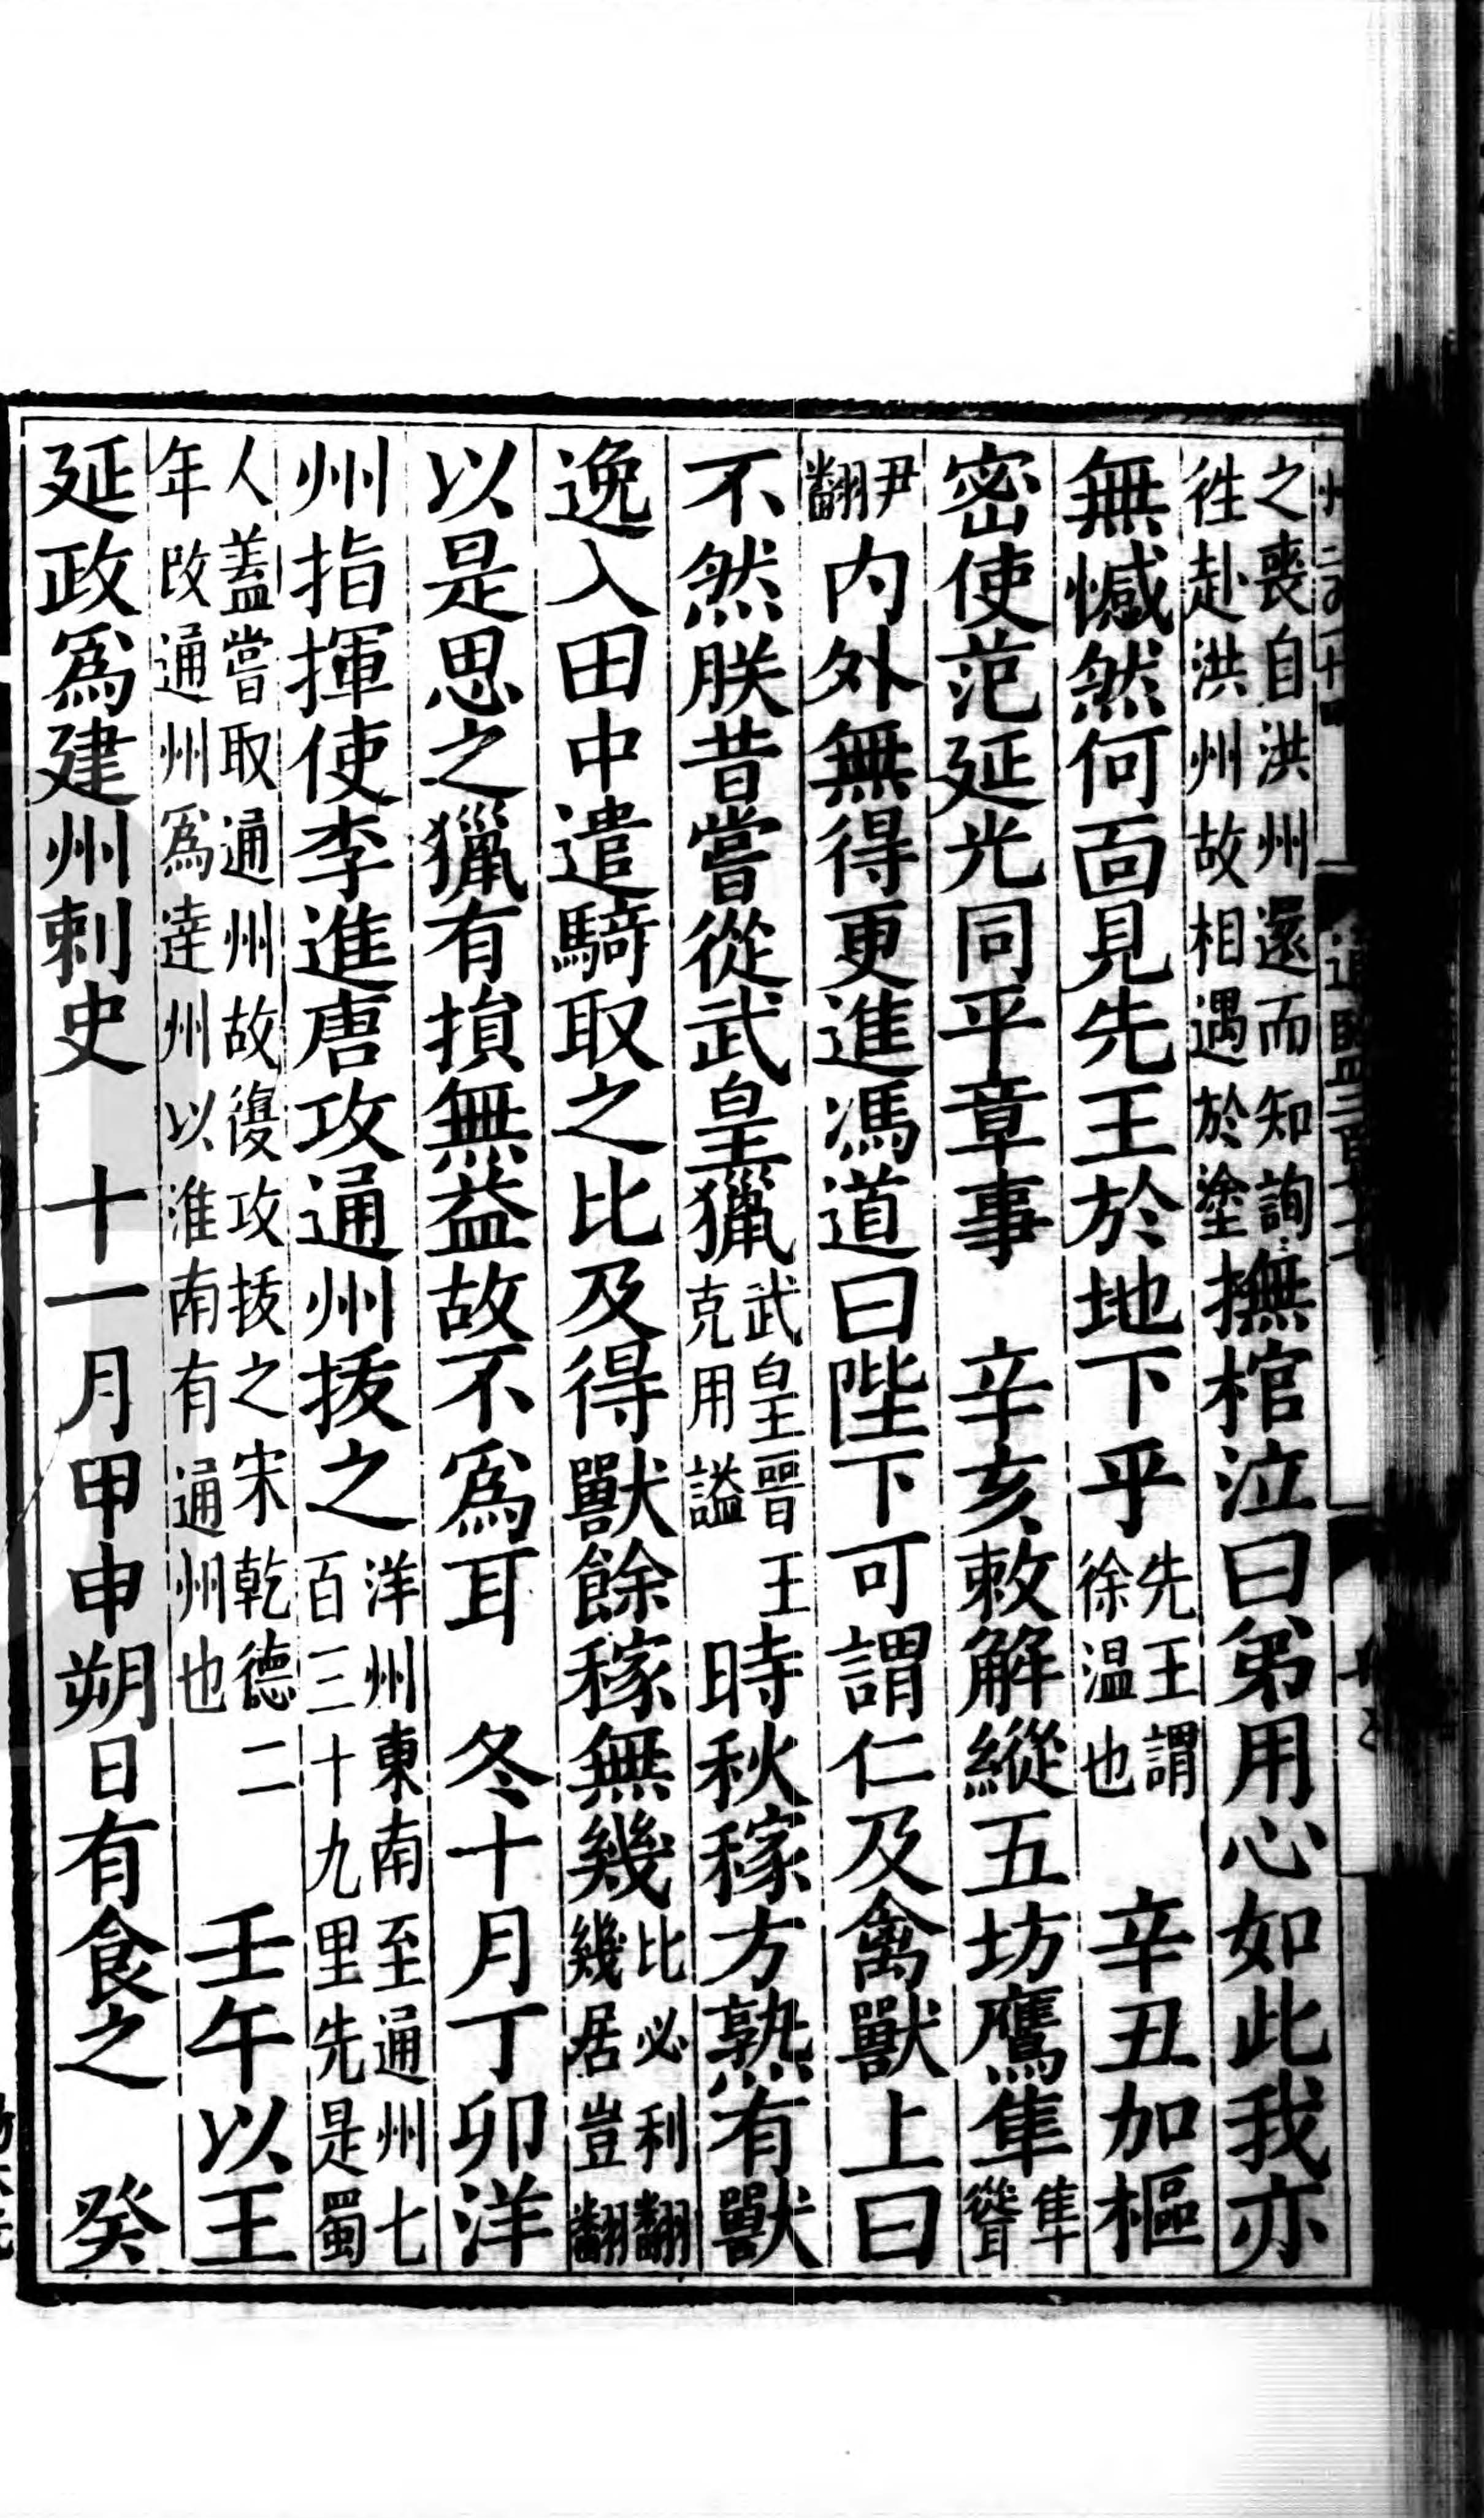 之喪自洪州還而知詢徃赴洪州故相遇於塗撫棺泣曰弟用心如此我亦
無憾然何面見先王於地下乎先王謂徐温也 辛丑加樞
密使范延光同平章事 辛亥敕解縱五坊鷹隼隼聳
尹翻内外無得更進馮道曰陛下可謂仁及禽獸上曰
不然朕昔嘗從武皇獵武皇晉王克用謚時秋稼方熟有獸
逸入田中遣騎取之比及得獸餘稼無幾比必利翻幾居豈翻
以是思之獵有損無益故不為耳 冬十月丁卯洋
州指揮使李進唐攻通州拔之洋州東南至通州七百三十九里先是蜀
人蓋嘗取通州故復攻拔之宋乾德二年改通州為達州以淮南有通州也 壬午以王
延政為建州刺史 十一月甲申朔日有食之 癸